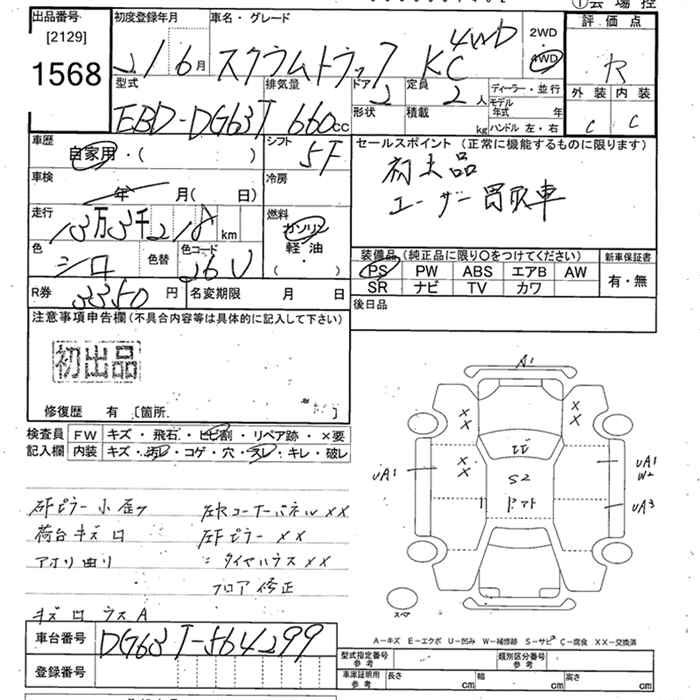 ①会場控
出品番号
[2129]
1568
初度登録年月
21/6月
車名・グレード
スクラムトラック KC 4WD
2WD
4WD
評価点
R
型式
EBD-DG63T
排気量
660cc
ドア
2
形状
定員
2人
積載
kg
ディーラー・並行
モデル年式 年
ハンドル 左・右
外装
C
内装
C
車歴
自家用・( )
シフト
5F
セールスポイント(正常に機能するものに限ります)
初出品
ユーザー買取車
車検
年 月( 日)
冷房
走行
13万3千218km
燃料
ガソリン
軽油
( ・ )
色
シロ
色替
色コード
26U
装備品(純正品に限り○をつけてください)
PS PW ABS エアB AW
SR ナビ TV カワ
新車保証書
有・無
R券
3350円
名変期限 月 日
後日品
注意事項申告欄(不具合内容等は具体的に記入して下さい)
初出品
修復歴 有〔箇所 〕
検査員記入欄
FW キズ・飛石・ヒビ割・リペア跡・×要
内装 キズ・汚レ・コゲ・穴・スレ・キレ・破レ
左Fピラー小歪
荷台キズロ
アオリ曲り
キズロ ウスA
左Rコーナーパネル××
左Fピラー ××
〃 タイヤハウス××
フロア修正
A1
××
××
××
UA1
S2
UA1
W2
UA3
スペア
A-キズ E-エクボ U-凹み W-補修跡 S-サビ C-腐食 XX-交換済
車台番号
DG63T-564299
登録番号
型式指定番号
参考
類別区分番号
参考
車庫証明寸法
参考
長さ cm
幅 cm
高さ cm